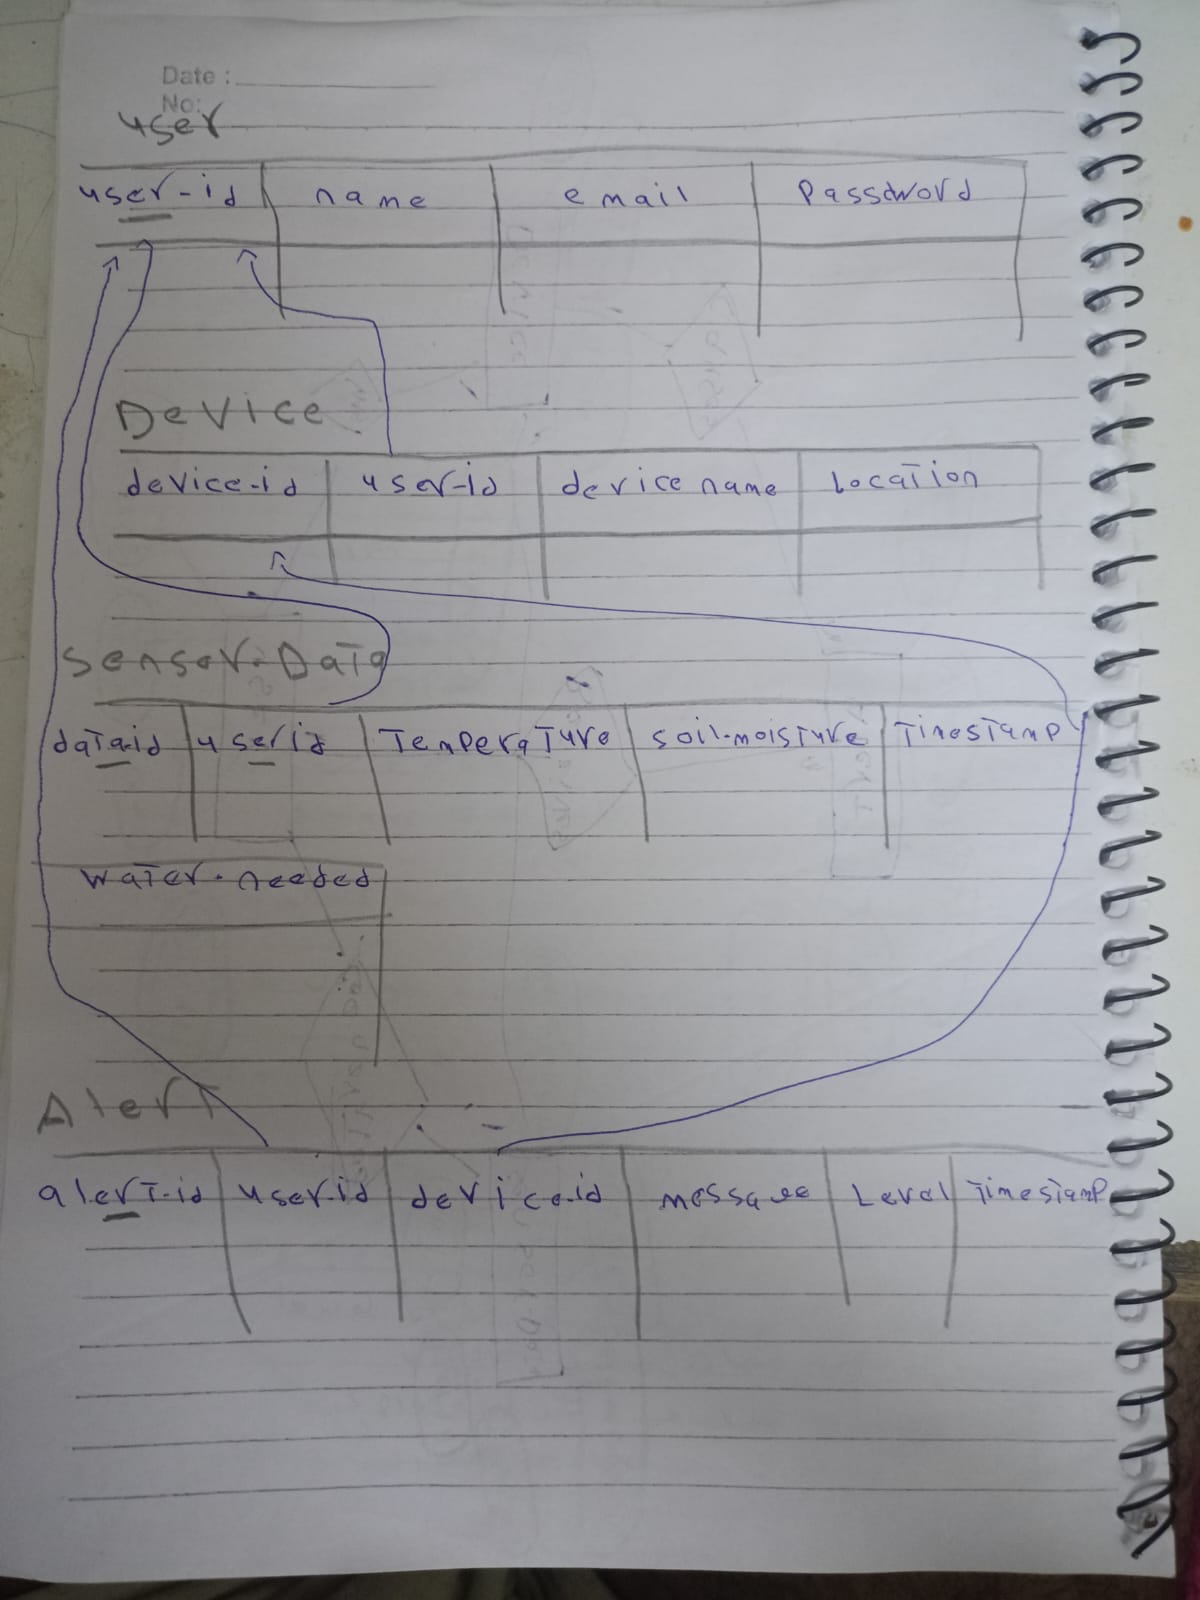 Date :
No:
user
user-id name email Password
Device
device-id user-id device name Location
Sensor-Data
data-id user id Temperature soil-moisture Timestamp
water-needed
Alert
alert-id user-id device-id message Level Timestamp